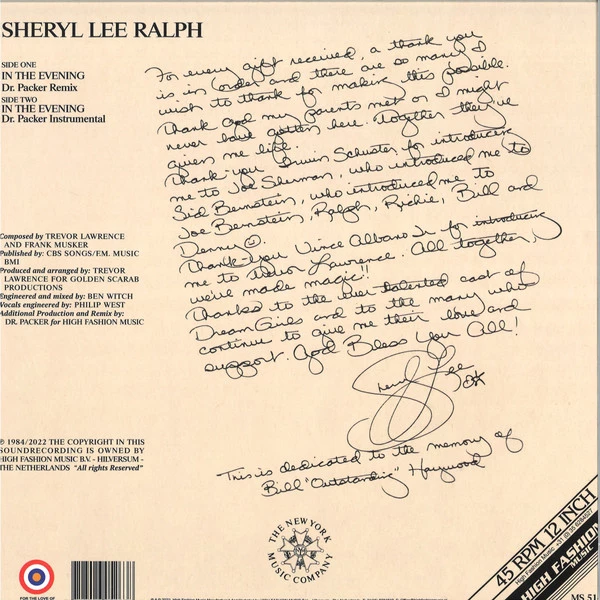 SHERYL LEE RALPH
SIDE ONE
IN THE EVENING
Dr. Packer Remix
SIDE TWO
IN THE EVENING
Dr. Packer Instrumental
For every gift received, a thank you
is in order and there are so many I
wish to thank for making this possible.
Thank God my parents met or I might
never have gotten here. Together they've
given me life.
Thank-you Irwin Schuster for introducing
me to Joe Sherman, who introduced me to
Sid Bernstein, who introduced me to
Joe Bernstein, Ralph, Richie, Bill and
Denny
Thank-You Vince Albano Jr. for introducing
me to Trevor Lawrence. All together,
we've made magic!!
Thanks to the ever talented cast of
Dream Girls and to the many who
continue to give me their love and
support. God Bless You All!
Sheryl Lee
This is dedicated to the memory of
Bill "Outstanding" Haywood
Composed by TREVOR LAWRENCE
AND FRANK MUSKER
Published by: CBS SONGS/EM. MUSIC
BMI
Produced and arranged by: TREVOR
LAWRENCE FOR GOLDEN SCARAB
PRODUCTIONS
Engineered and mixed by: BEN WITCH
Vocals engineered by: PHILIP WEST
Additional Production and Remix by:
DR. PACKER for HIGH FASHION MUSIC
℗ 1984/2022 THE COPYRIGHT IN THIS
SOUNDRECORDING IS OWNED BY
HIGH FASHION MUSIC B.V. - HILVERSUM -
THE NETHERLANDS "All rights Reserved"
FOR THE LOVE OF
THE NEW YORK
MUSIC COMPANY
45 RPM 12 INCH
HIGH FASHION
MUSIC
MS 51